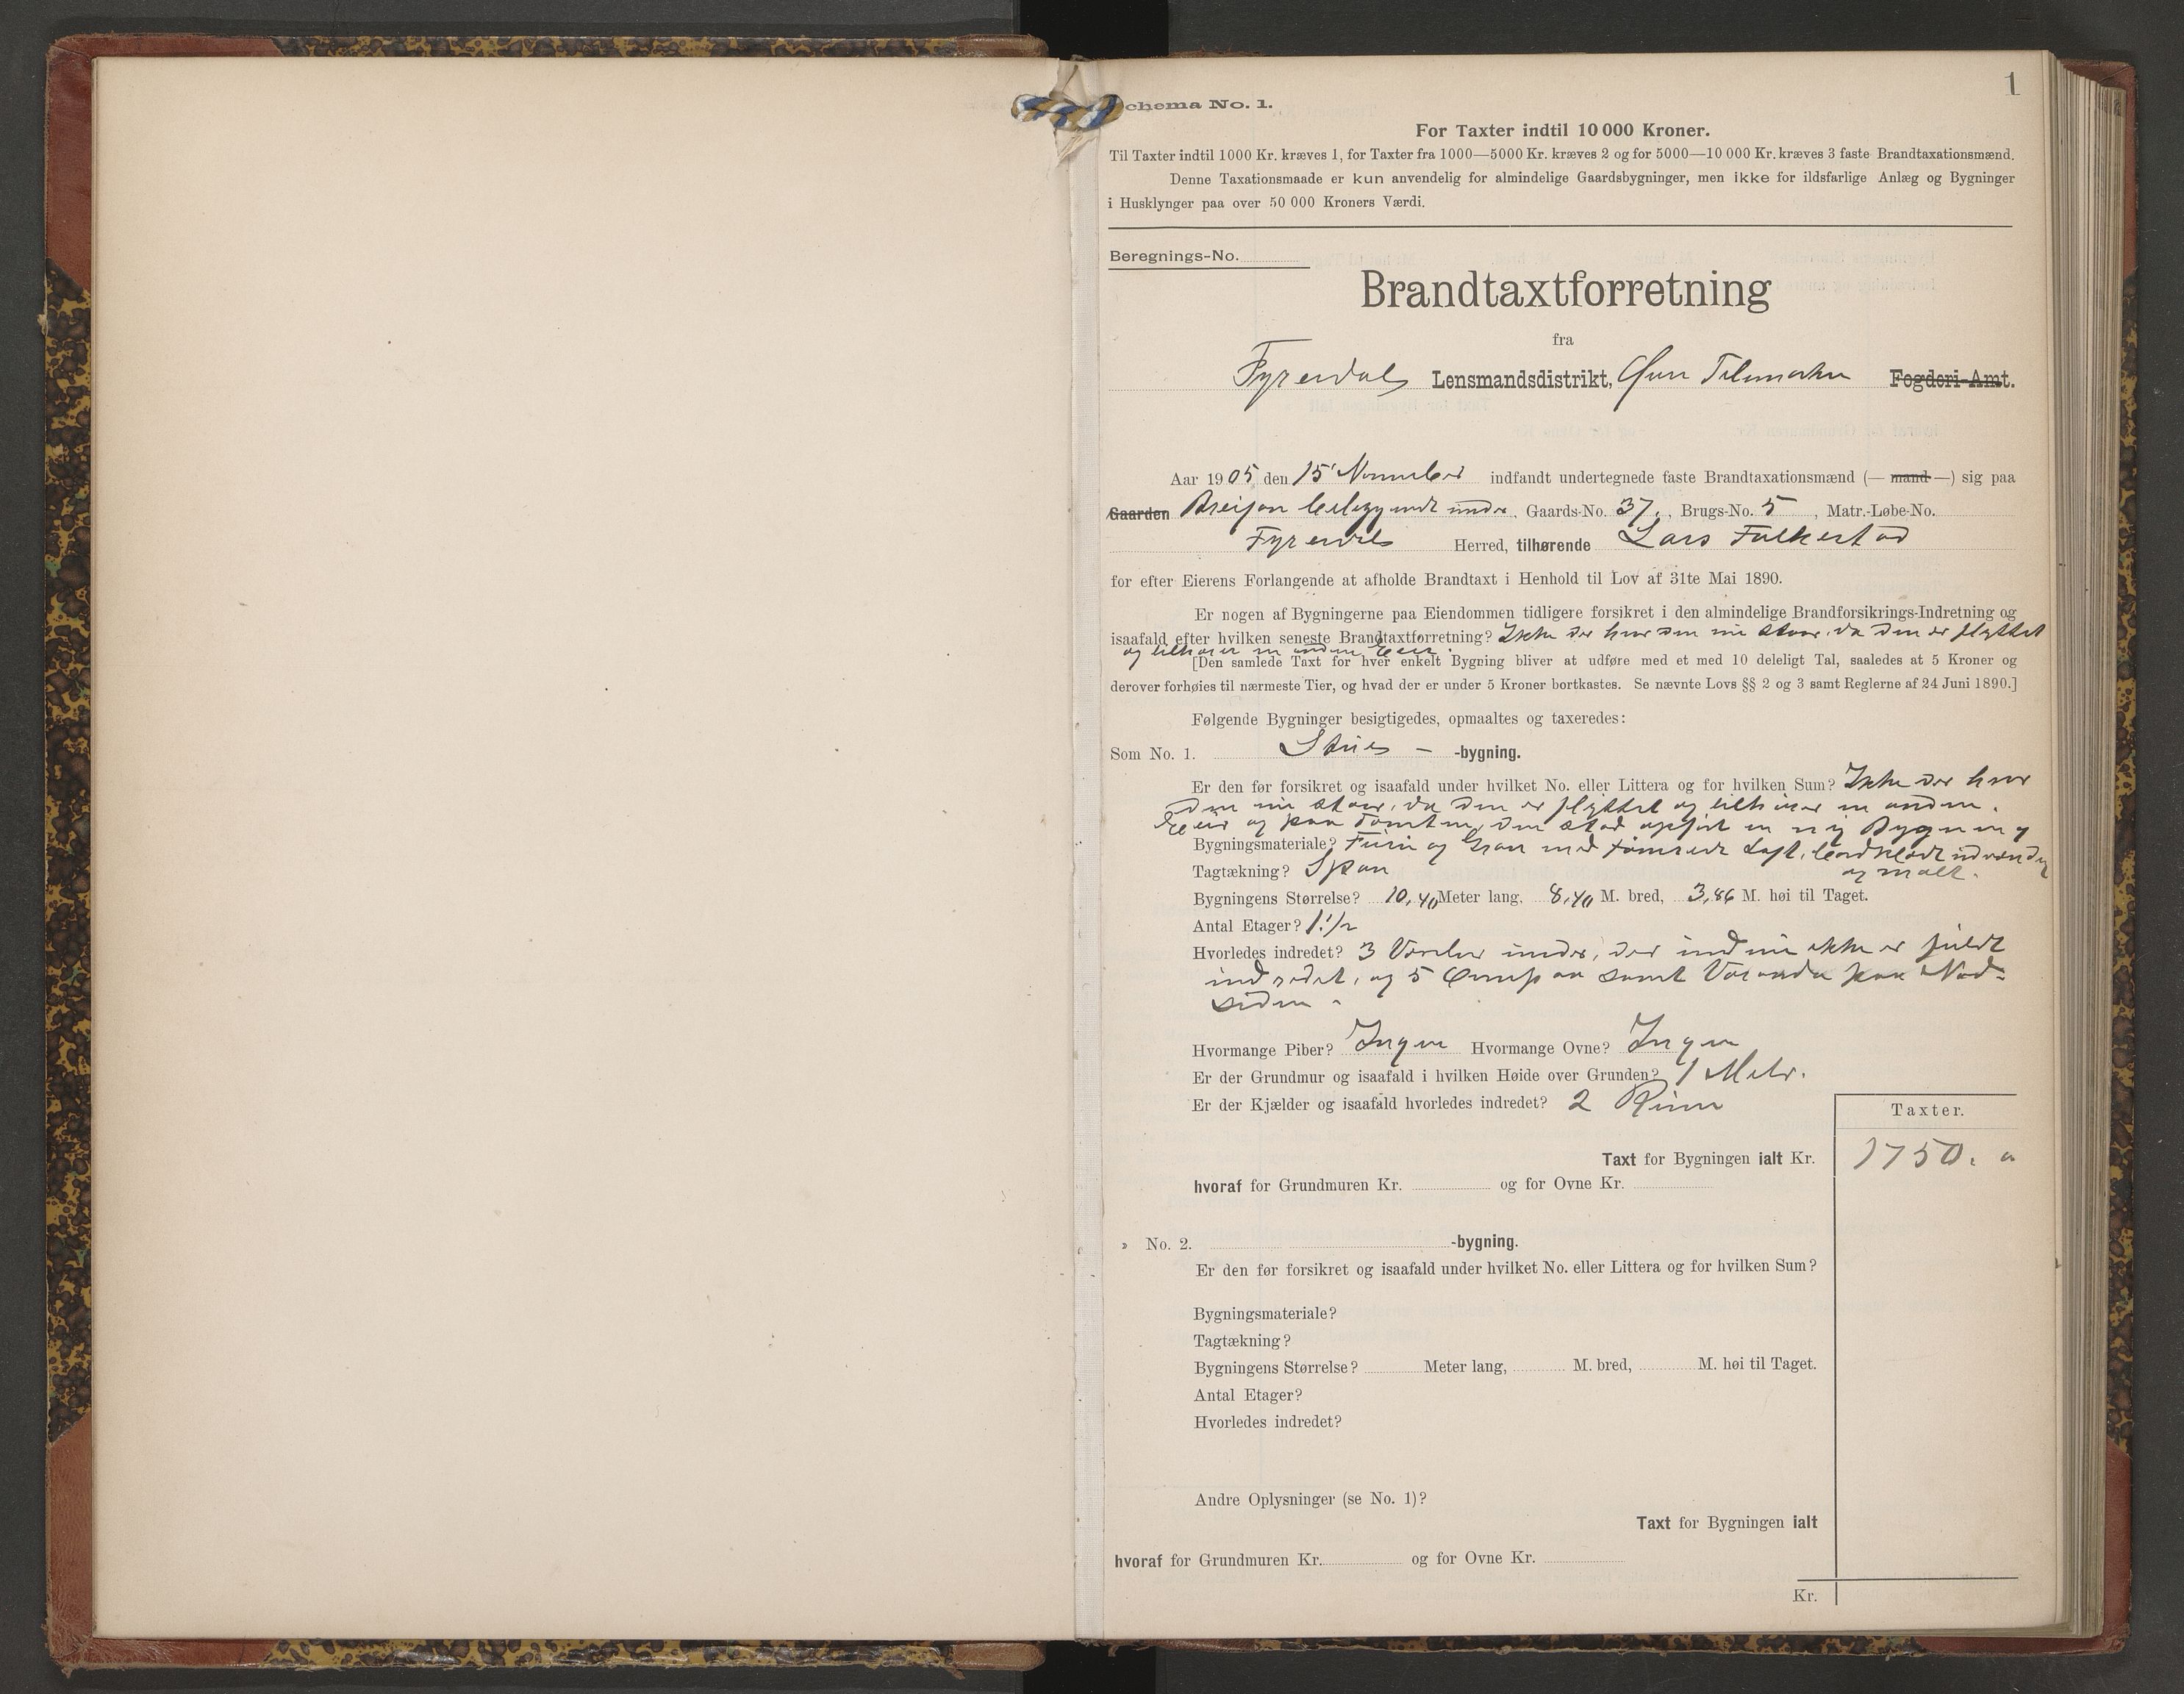 1
chema No. 1.
For Taxter indtil 10 000 Kroner.
Til Taxter indtil 1000 Kr. kræves 1, for Taxter fra 1000—5000 Kr. kræves 2 og for 5000—10 000 Kr. kræves 3 faste Brandtaxationsmænd.
Denne Taxationsmaade er kun anvendelig for almindelige Gaardsbygninger, men ikke for ildsfarlige Anlæg og Bygninger
i Husklynger paa over 50 000 Kroners Værdi.
Beregnings-No.
Brandtaxtforretning
fra
Fyresdals Lensmandsdistrikt, Telemarken Fogderi-Amt.
Aar 1905 den 15' November indfandt undertegnede faste Brandtaxationsmænd (— mand —) sig paa
Gaarden under, Gaards-No. 37., Brugs-No. 5, Matr.-Løbe-No.
Fyresdals Herred, tilhørende Lars Folkestad
for efter Eierens Forlangende at afholde Brandtaxt i Henhold til Lov af 31te Mai 1890.
Er nogen af Bygningerne paa Eiendommen tidligere forsikret i den almindelige Brandforsikrings-Indretning og
isaafald efter hvilken seneste Brandtaxtforretning? Ikke der hvor den nu staar, da den er flyttet
og tilhører en anden Eier.
[Den samlede Taxt for hver enkelt Bygning bliver at udføre med et med 10 deleligt Tal, saaledes at 5 Kroner og
derover forhøies til nærmeste Tier, og hvad der er under 5 Kroner bortkastes. Se nævnte Lovs §§ 2 og 3 samt Reglerne af 24 Juni 1890.]
Følgende Bygninger besigtigedes, opmaaltes og taxeredes:
Som No. 1. Stues - -bygning.
Er den før forsikret og isaafald under hvilket No. eller Littera og for hvilken Sum? Ikke der hvor
den nu staar, da den er flyttet og tilhører en anden.
Eeier og paa Tomten, den stod opført en ny Bygning
Bygningsmateriale? Furu og Gran med tømrede Loft, bordklædt udvendig
Tagtækning? Spon og malt.
Bygningens Størrelse? 10,40 Meter lang, 8,40 M. bred, 3,86 M. høi til Taget.
Antal Etager? 1 1/2
Hvorledes indredet? 3 Værelser under, der endnu ikke er fuldt
indredet, og 5 ovenpaa samt Veranda paa Nord-
siden -
Hvormange Piber? Ingen Hvormange Ovne? Ingen
Er der Grundmur og isaafald i hvilken Høide over Grunden? 1 Meter.
Er der Kjælder og isaafald hvorledes indredet? 2 Rum
Taxter.
Taxt for Bygningen ialt Kr. 1750.
hvoraf for Grundmuren Kr. og for Ovne Kr.
» No. 2. -bygning.
Er den før forsikret og isaafald under hvilket No. eller Littera og for hvilken Sum?
Bygningsmateriale?
Tagtækning?
Bygningens Størrelse? Meter lang, M. bred, M. høi til Taget.
Antal Etager?
Hvorledes indredet?
Andre Oplysninger (se No. 1)?
Taxt for Bygningen ialt
hvoraf for Grundmuren Kr. og for Ovne Kr.
Kr.